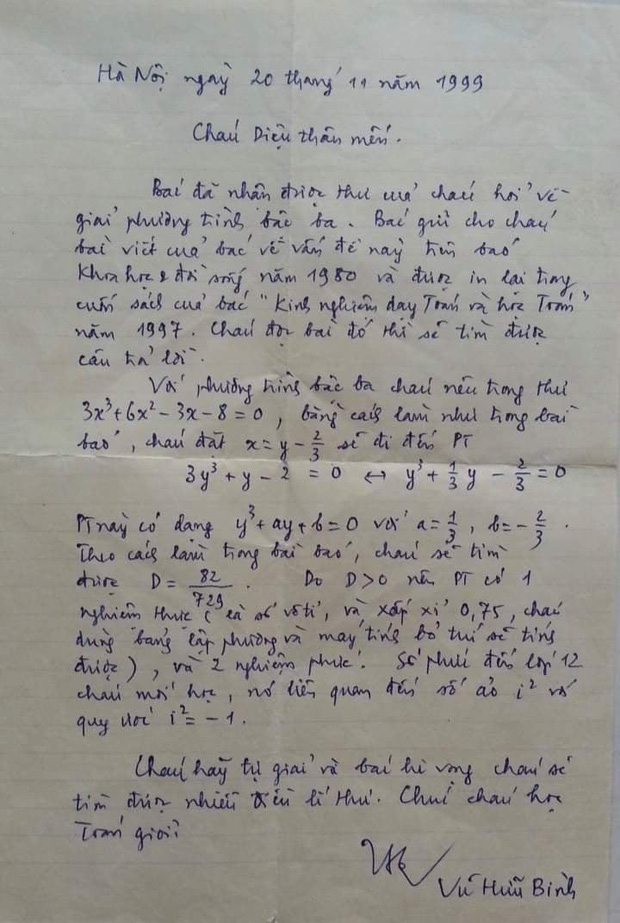 Hà Nội ngày 20 tháng 11 năm 1999
Cháu Diệu thân mến.
Bác đã nhận được thư của cháu hỏi về
giải phương trình bậc ba. Bác gửi cho cháu
bài viết của bác về vấn đề này trên báo
Khoa học & đời sống năm 1980 và được in lại trong
cuốn sách của bác "Kinh nghiệm dạy Toán và học Toán"
năm 1997. Cháu đọc bài đó thì sẽ tìm được
câu trả lời.
Với phương trình bậc ba cháu nêu trong thư
3x³+6x²-3x-8=0, bằng cách làm như trong bài
báo, cháu đặt x=y-2/3 sẽ đi đến PT
3y³+y-2=0 ↔ y³+1/3y-2/3=0
PT này có dạng y³+ay+b=0 với a=1/3, b=-2/3.
Theo cách làm trong bài báo, cháu sẽ tìm
được D=82/729. Do D>0 nên PT có 1
nghiệm thực (là số vô tỉ, và xấp xỉ 0,75, cháu
dùng bảng lập phương và máy tính bỏ túi sẽ tính
được), và 2 nghiệm phức. Số phức đến lớp 12
cháu mới học, nó liên quan đến số ảo i² với
quy ước i²=-1.
Cháu hãy tự giải và bác hi vọng cháu sẽ
tìm được nhiều điều lí thú. Chúc cháu học
Toán giỏi!
Vũ Hữu Bình